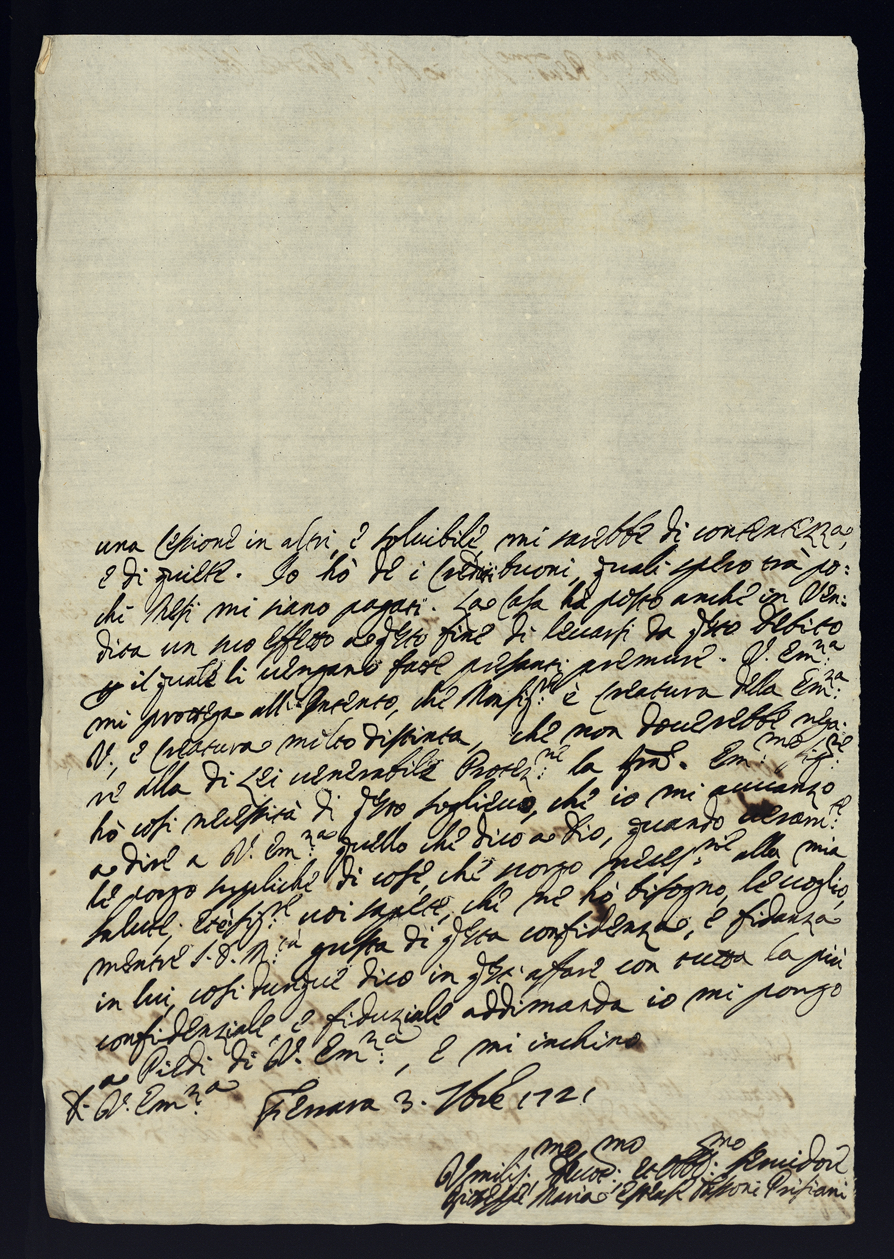 una Cessione in altri, è solvibile, mi sarebbe di contentezza,
e di quiete. Io hò de i Crediti buoni, quali spero trà po:
chi Mesi mi siano pagati. La Casa hà posto anche in Ven:
dita un suo effetto a questo fine di levarsi da questo Debito
per il quale li vengano fatte pressanti premure. V. Em:za
mi protega all'Intento, che Monsig:re è Creatura della Em:za
V., e Creatura molto distinta, che non doverebbe nega:
re alla di Lei venerabile Protez:ne la . Em:mo Sig:re
hò così necessità di questo sollievo, che io mi avvanzo
a dire a V. Em:za quello che dico a Dio, quando veram:te
le porgo suppliche di cose, che scorgo necess:rie alla mia
salute, , voi sapete, che ne hò bisogno, le voglio,
mentre S. D. M:tà gusta di questa confidenza, e fidanza
in lui, così dunque dico in questo affare con tutta la più
confidenziale, e fiduziale addimanda io mi pongo
a Piedi di V. Em:za, e mi inchino
D. V. Em:za Ferrara 3. 7bre 1721
Umilis:mo Devot:mo et Obblig:mo Servidore
Maria Estense Tassoni Prisciani